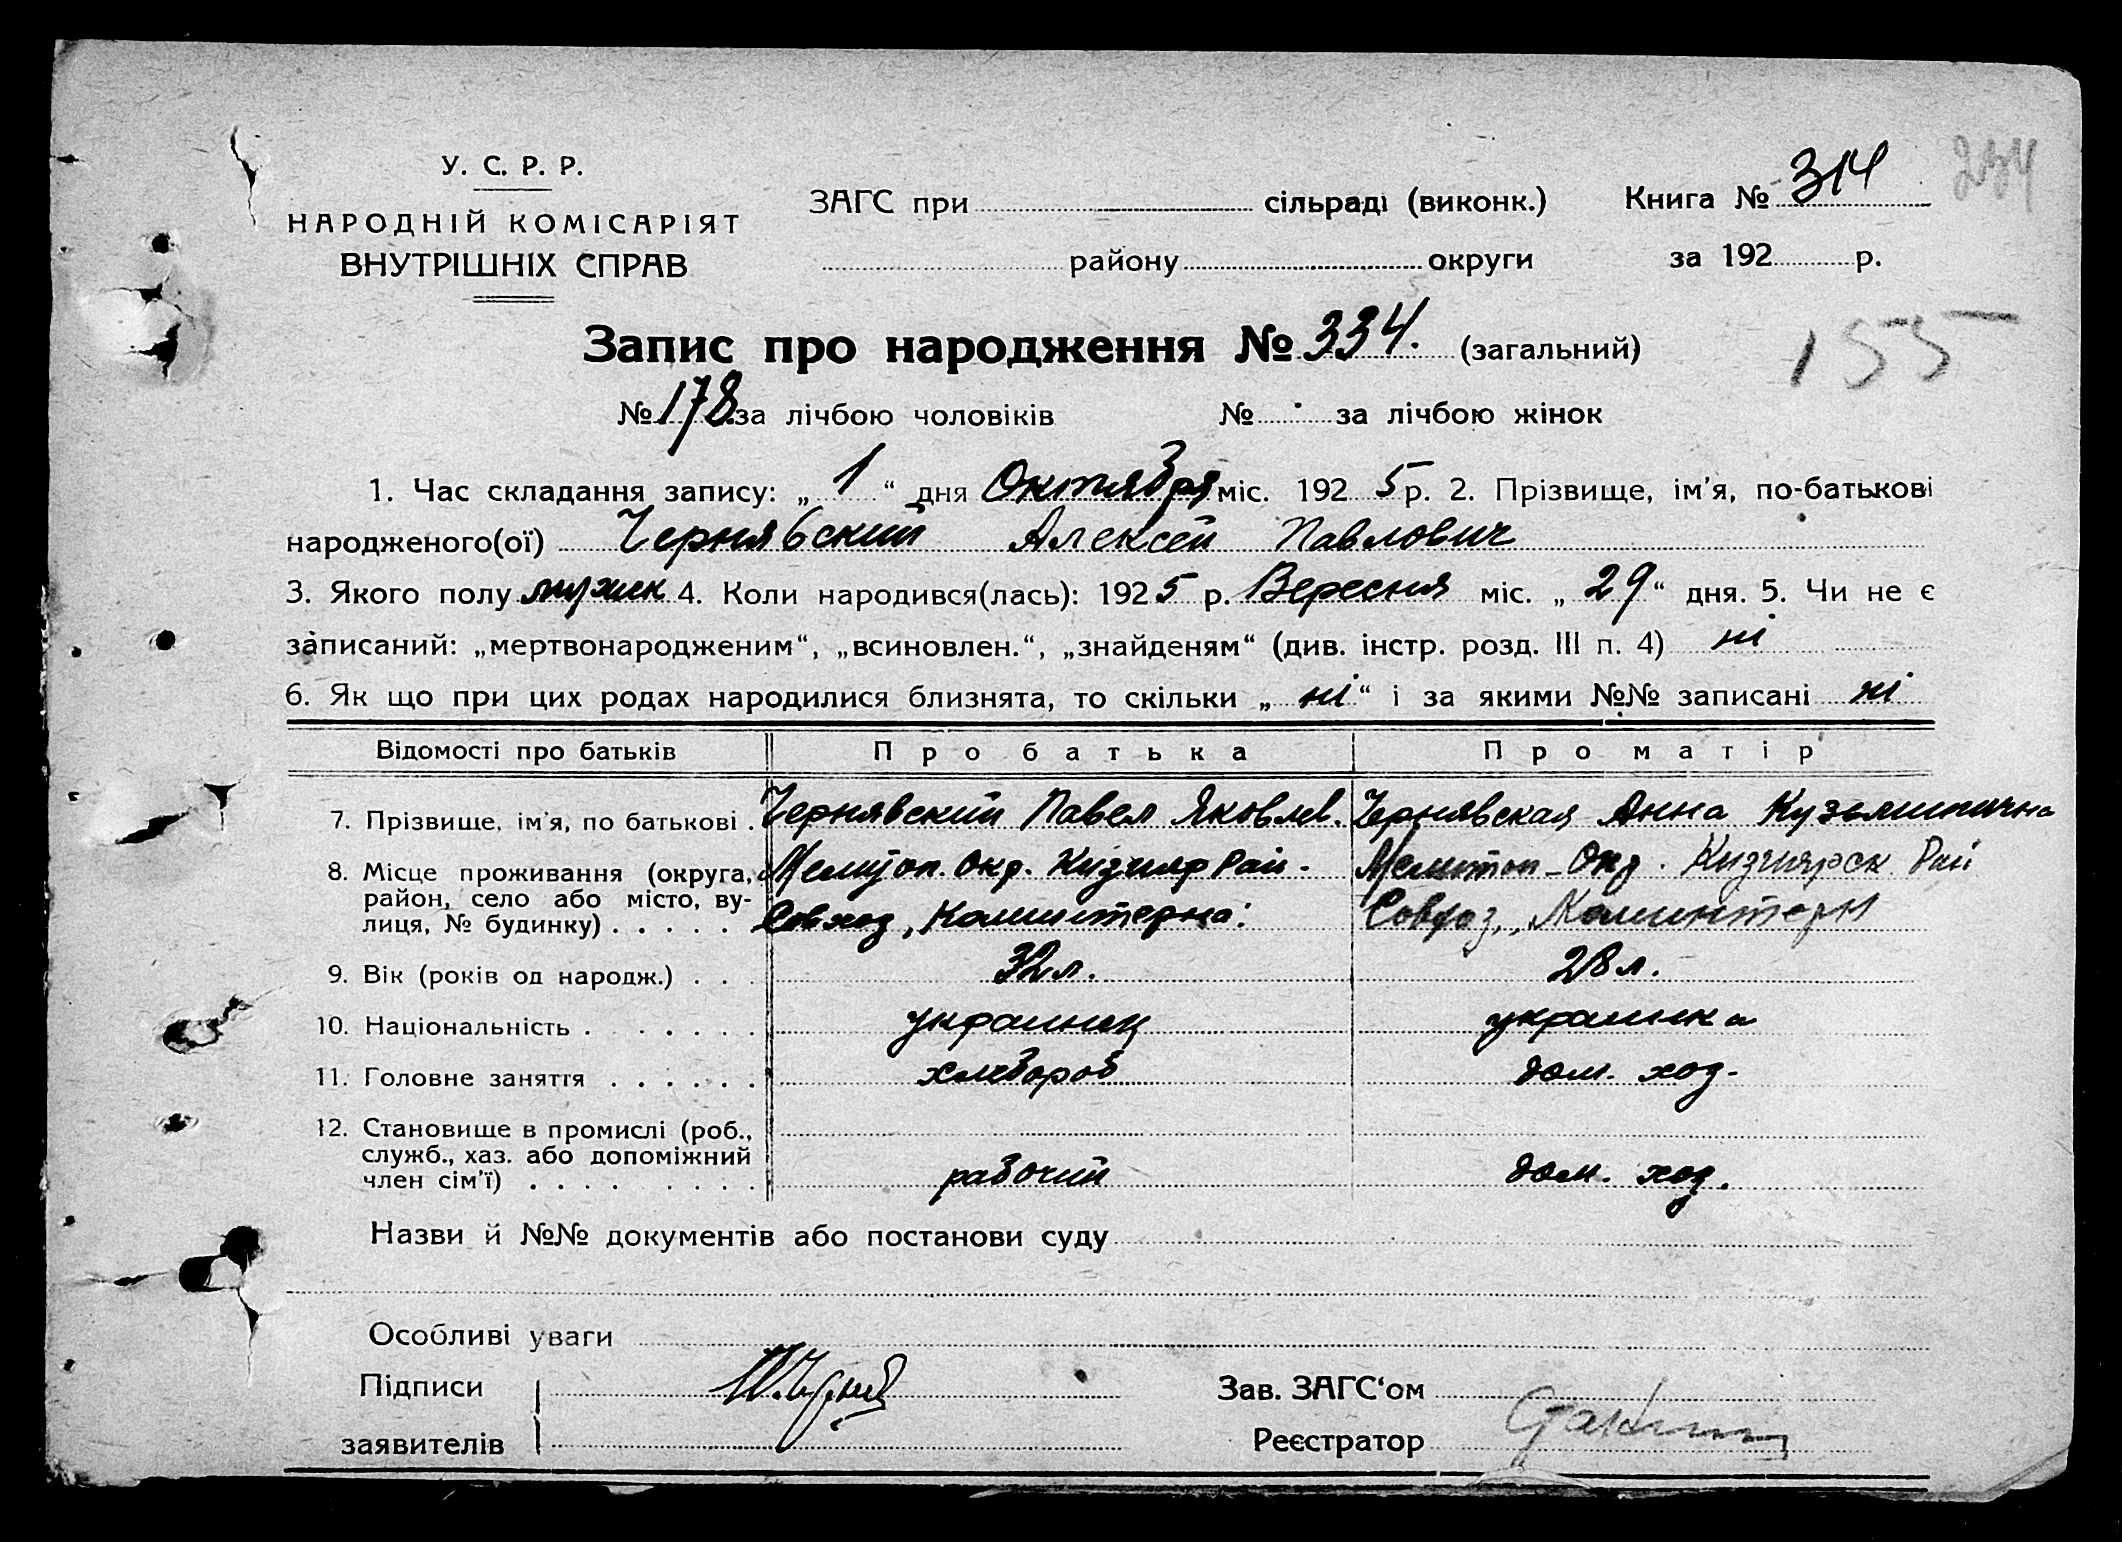 У. С. Р. Р.
НАРОДНІЙ КОМІСАРІЯТ
ВНУТРІШНІХ СПРАВ
ЗАГС при сільраді (виконк.)
району округи
Книга № 314
234
за 192 р.
Запис про народження № 334. (загальний)
155
№ 178 за лічбою чоловіків № за лічбою жінок
1. Час складання запису: „ 1 “ дня Октября міс. 192 5 р. 2. Прізвище, ім'я, по-батькові
народженого(ої) Чернявский Алексей Павлович
3. Якого полу мужск 4. Коли народився(лась): 192 5 р. Вересня міс. „ 29 “ дня. 5. Чи не є
записаний: „мертвонародженим“, „всиновлен.“, „знайденям“ (див. інстр. розд. III п. 4) ні
6. Як що при цих родах народилися близнята, то скільки „ ні “ і за якими №№ записані ні
Відомості про батьків Про батька Про матір
7. Прізвище, ім'я, по батькові . Чернявский Павел Яковлев. Чернявская Анна Кузьминична
8. Місце проживання (округа, Мелитоп. Окр. Кизияр Рай. Мелитоп. Окр. Кизиярск Рай
район, село або місто, ву-
лиця, № будинку) . . . . . Совхоз „Коминтерна“ Совхоз „Коминтерн
9. Вік (років од народж.) . . . 32 л. 28 л.
10. Національність . . . . . . украинец украинка
11. Головне заняття . . . . . . хлебороб дом. хоз.
12. Становище в промислі (роб.,
служб., хаз. або допоміжний
член сім'ї) . . . . . . . . рабочий дом. хоз.
Назви й №№ документів або постанови суду
Особливі уваги
Підписи
заявителів
Зав. ЗАГС‘ом
Реєстратор